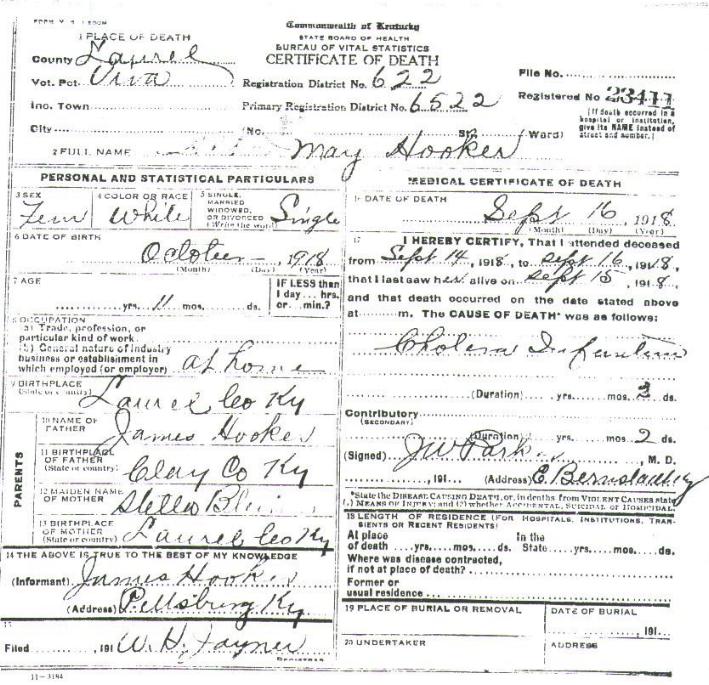 Commonwealth of Kentucky
STATE BOARD OF HEALTH
BUREAU OF VITAL STATISTICS
CERTIFICATE OF DEATH
1 PLACE OF DEATH
County Laurel
Vot. Pct. Viva
Inc. Town
City No. St. Ward)
Registration District No. 622
Primary Registration District No. 6522
File No.
Registered No 23411
(If death occurred in a
hospital or institution,
give its NAME instead of
street and number.)
2 FULL NAME May Hooker
PERSONAL AND STATISTICAL PARTICULARS
3 SEX
Fem
4 COLOR OR RACE
White
5 SINGLE,
MARRIED
WIDOWED,
OR DIVORCED
(Write the word)
Single
6 DATE OF BIRTH
October 1918
(Month) (Day) (Year)
7 AGE
yrs. 11 mos. ds.
IF LESS than
1 day... hrs.
or... min.?
8 OCCUPATION
a) Trade, profession, or
particular kind of work
(b) General nature of industry
business or establishment in
which employed (or employer) at home
9 BIRTHPLACE
(State or country) Laurel Co Ky
PARENTS
10 NAME OF
FATHER James Hooker
11 BIRTHPLACE
OF FATHER
(State or country) Clay Co Ky
12 MAIDEN NAME
OF MOTHER Stella
13 BIRTHPLACE
OF MOTHER
(State or country) Laurel Co Ky
14 THE ABOVE IS TRUE TO THE BEST OF MY KNOWLEDGE
(Informant) James Hooker
(Address) Pittsburg Ky
15
Filed 191 W. H.
REGISTRAR
11-3184
MEDICAL CERTIFICATE OF DEATH
16 DATE OF DEATH
Sept 16, 1918
(Month) (Day) (Year)
17 I HEREBY CERTIFY, That I attended deceased
from Sept 14, 1918, to Sept 16, 1918,
that I last saw her alive on Sept 15, 1918,
and that death occurred on the date stated above
at m. The CAUSE OF DEATH* was as follows:
Cholera Infantum
(Duration) yrs. mos. 2 ds.
Contributory
(SECONDARY)
(Duration) yrs. mos. 2 ds.
(Signed) JW Parker, M. D.
, 191 (Address) E. Bernstadt Ky
*State the DISEASE CAUSING DEATH, or, in deaths from VIOLENT CAUSES state
(1) MEANS OF INJURY; and (2) whether ACCIDENTAL, SUICIDAL or HOMICIDAL.
18 LENGTH OF RESIDENCE (FOR HOSPITALS, INSTITUTIONS, TRAN-
SIENTS OR RECENT RESIDENTS)
At place In the
of death yrs. mos. ds. State yrs. mos. ds.
Where was disease contracted,
if not at place of death?
Former or
usual residence
19 PLACE OF BURIAL OR REMOVAL
DATE OF BURIAL
, 191
20 UNDERTAKER
ADDRESS